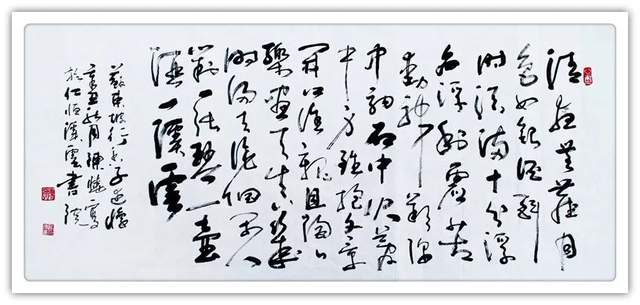 清夜無塵月
色如銀酒斟
时須滿十分浮
名浮利虛苦
勞神嘆隙
中駒石中火夢
中身雖抱文章
開口誰親且陶陶
樂盡天真幾时
歸去作個閒人
對一張琴一壺
酒一溪雲
蘇東坡行香子述懷
辛丑秋月 寫
於仁恒溪雲書院